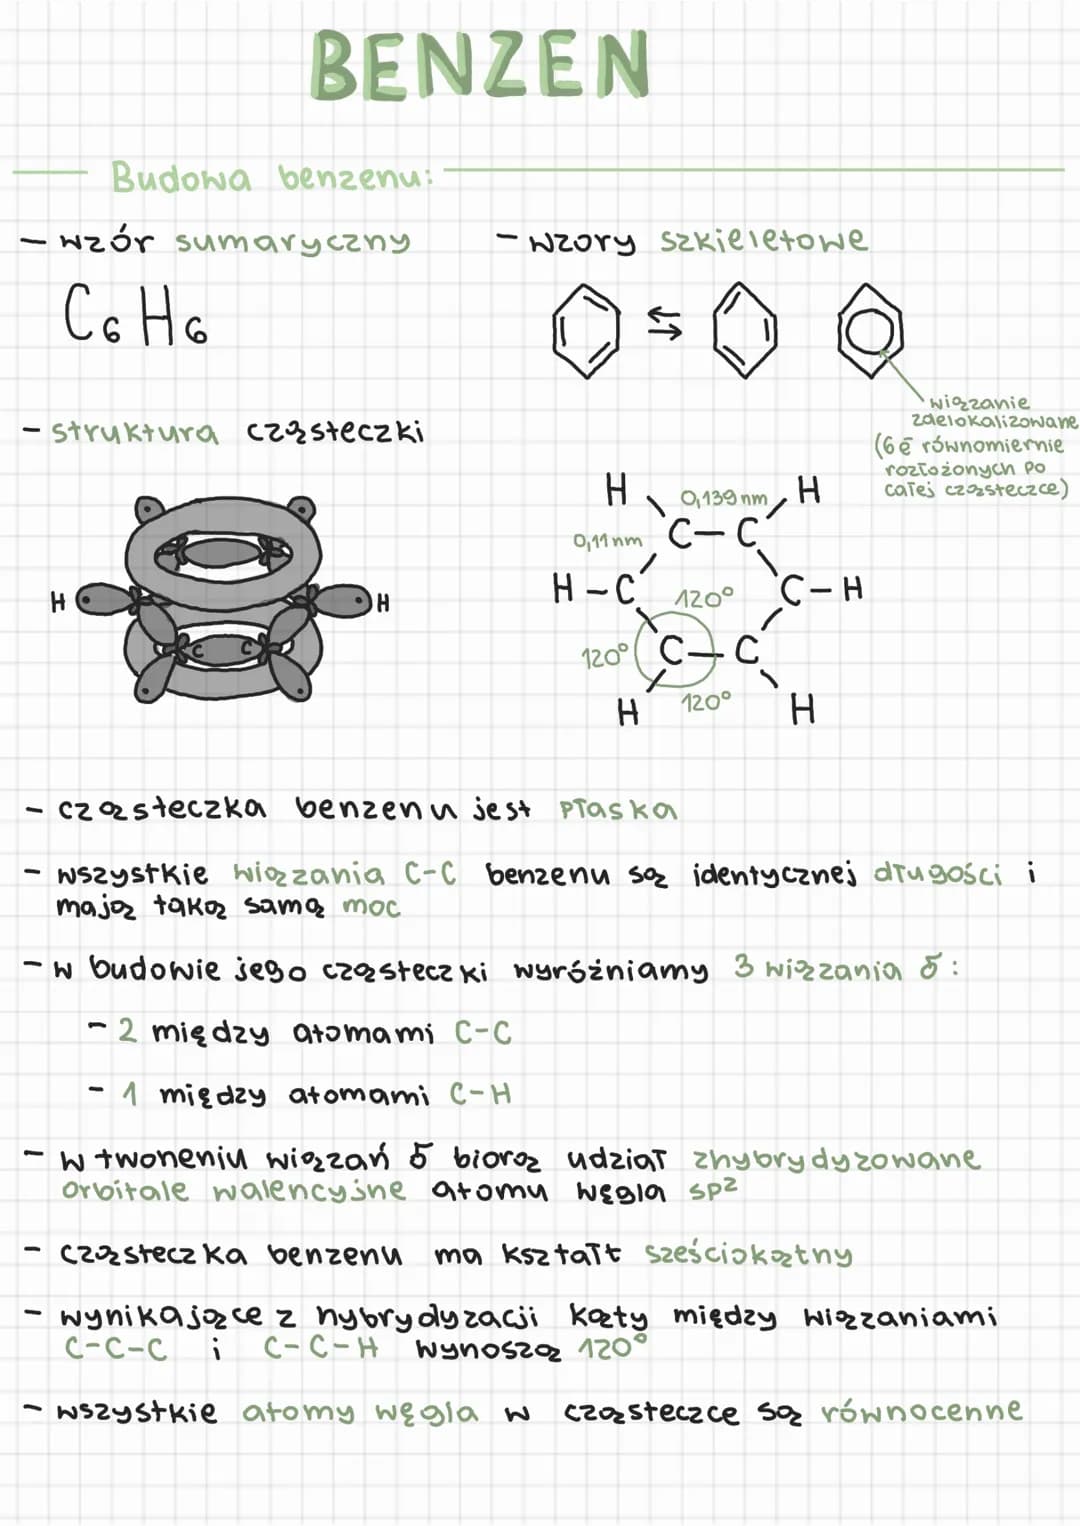 BENZEN
Budowa benzenu:
- wzór sumaryczny
- wzory szkieletowe
C6H6
wiązanie
zdelokalizowane
(6ē równomiernie
rozłożonych po
całej cząsteczce)
- struktura cząsteczki
H
H
C
C
H
0,139 nm
H
0,11 nm
C-C
H-C
120°
C-H
120°
C-C
H
120°
H
- cząsteczka benzenu jest płaska
- wszystkie wiązania C-C benzenu są identycznej długości i
mają taką samą moc
- w budowie jego cząsteczki wyróżniamy 3 wiązania δ:
- 2 między atomami C-C
- 1 między atomami C-H
- w tworeniu wiązań δ biorą udział zhybrydyzowane
orbitale walencyjne atomu węgla sp²
- cząsteczka benzenu ma kształt sześciokątny
- wynikające z hybrydyzacji kąty między wiązaniami
C-C-C i C-C-H wynoszą 120°
- wszystkie atomy węgla w cząsteczce są równocenne